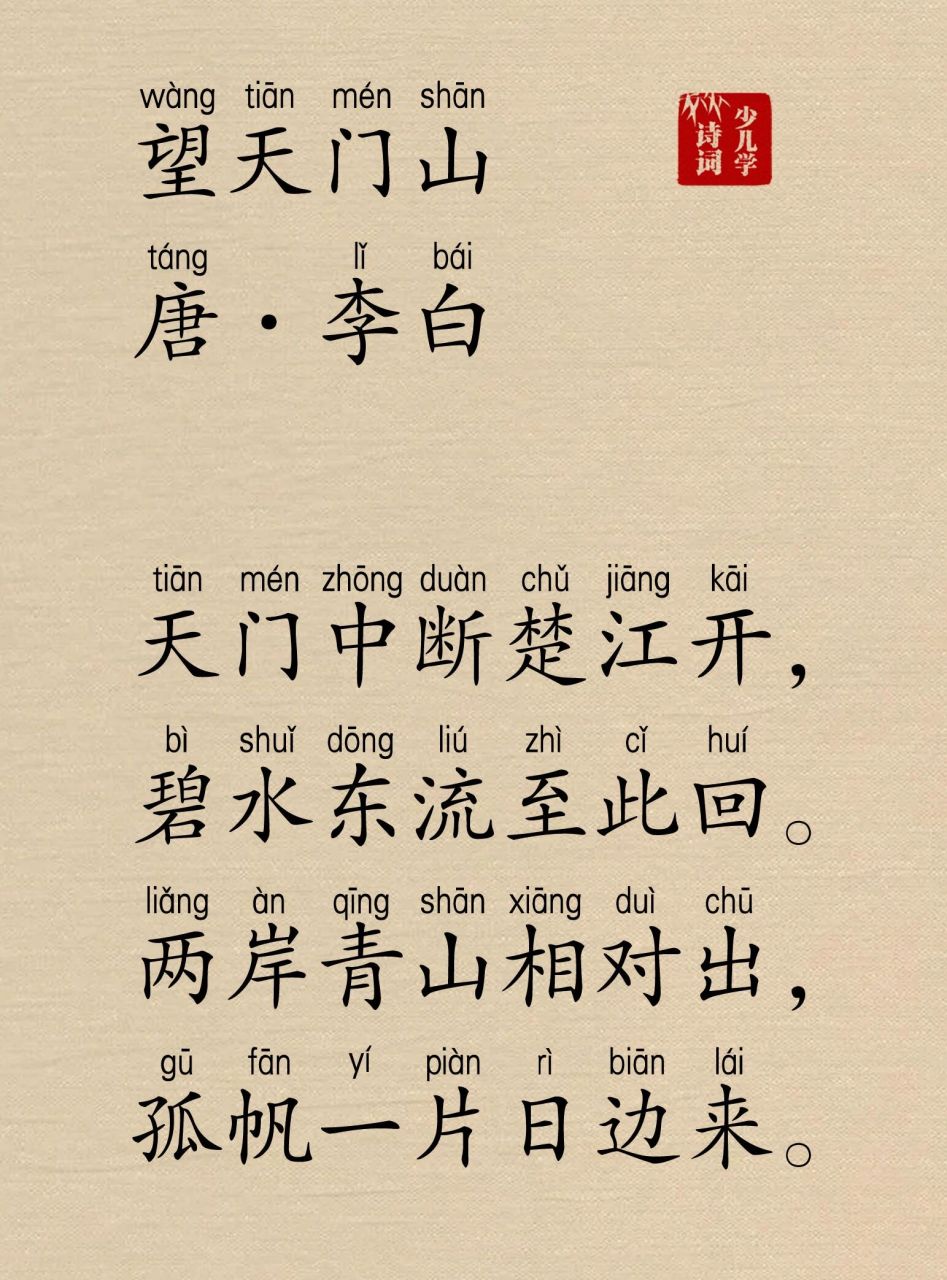 wàng tiān mén shān
望天门山
少儿学
诗词
táng lǐ bái
唐·李白
tiān mén zhōng duàn chǔ jiāng kāi
天门中断楚江开，
bì shuǐ dōng liú zhì cǐ huí
碧水东流至此回。
liǎng àn qīng shān xiāng duì chū
两岸青山相对出，
gū fān yí piàn rì biān lái
孤帆一片日边来。